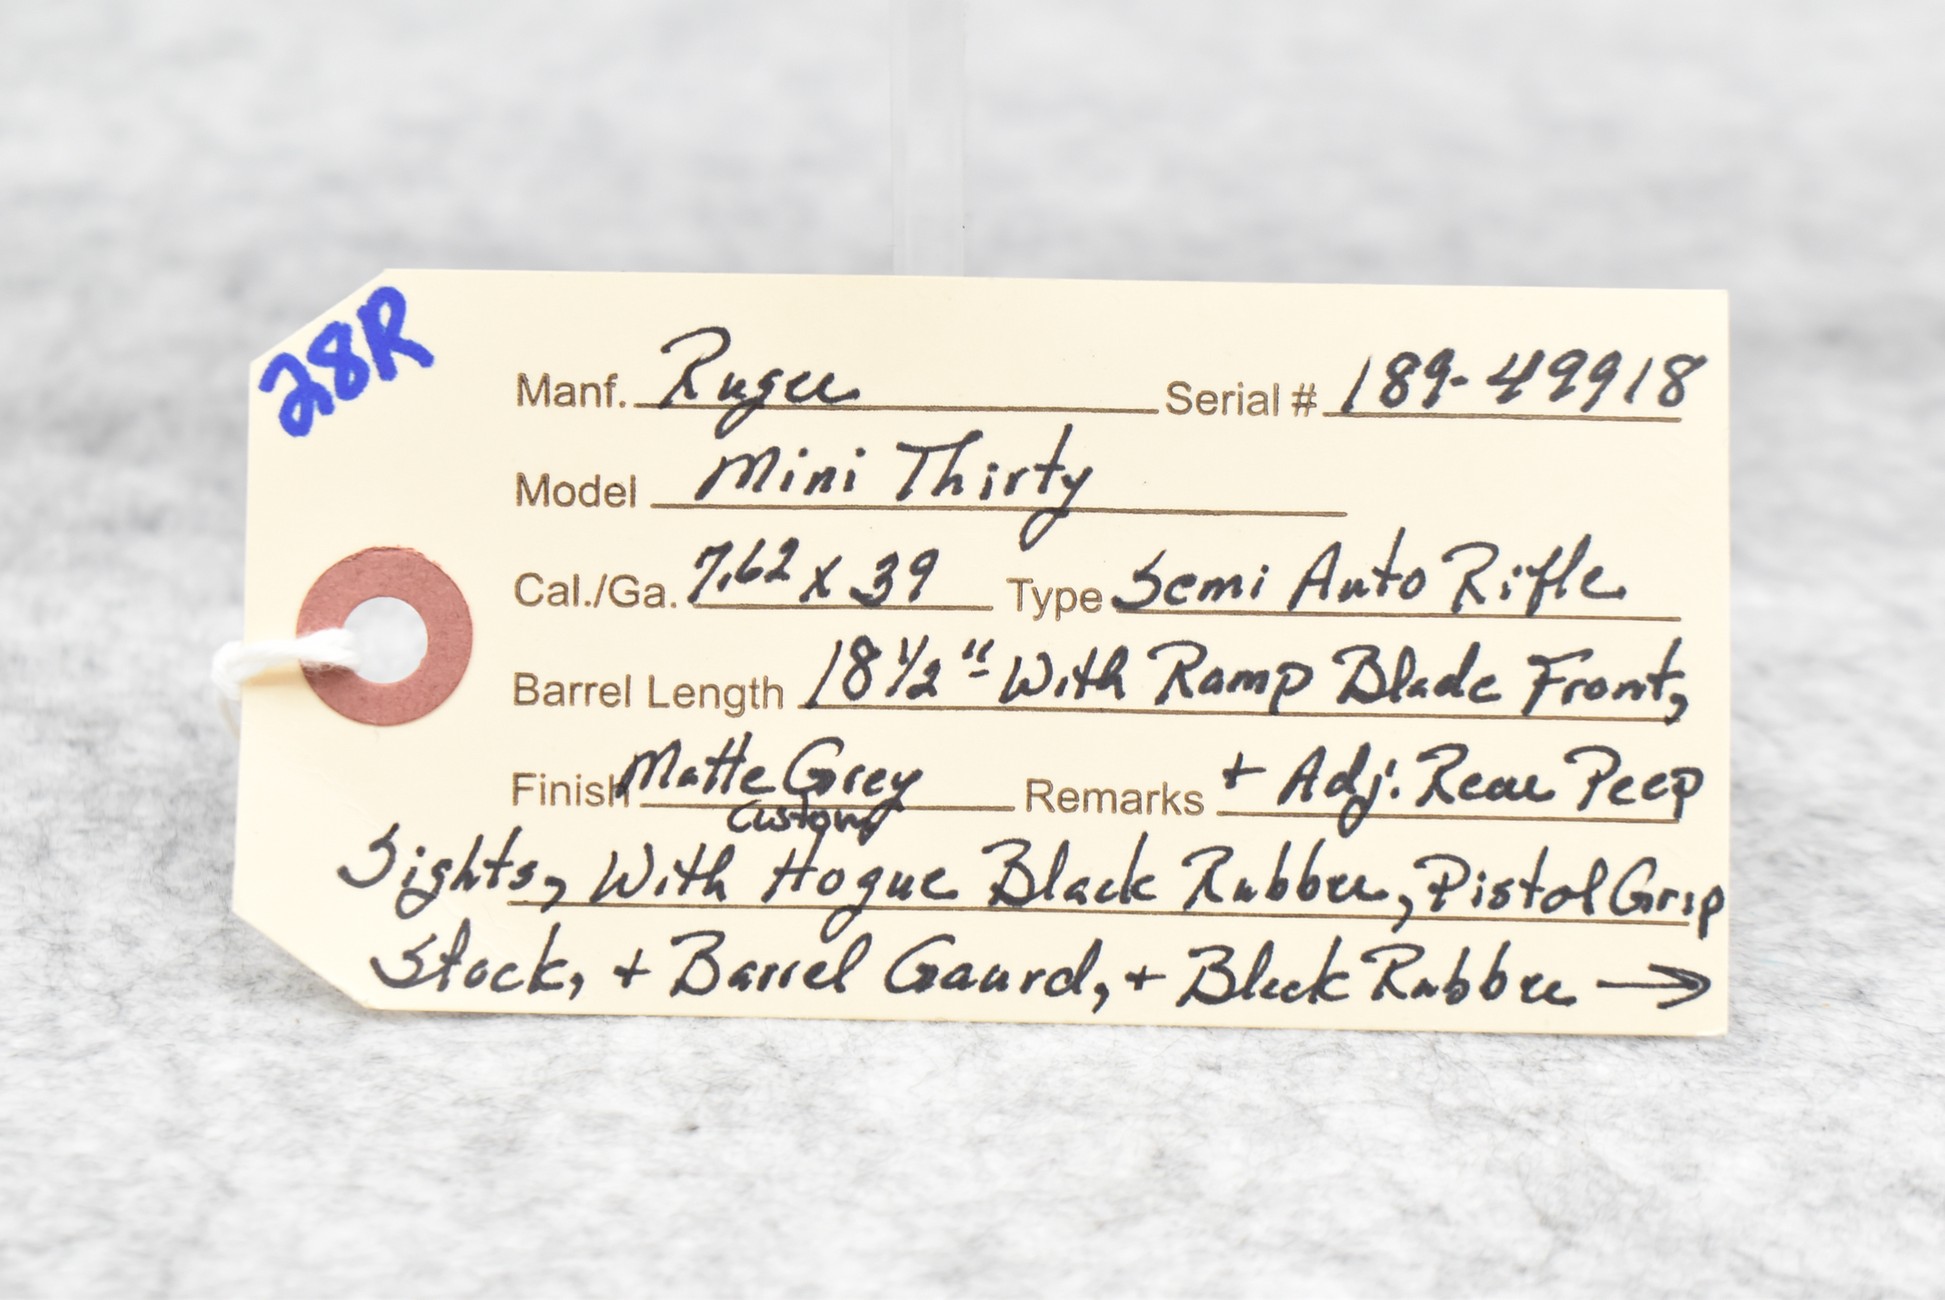 28R
Manf. Ruger Serial # 189-49918
Model Mini Thirty
Cal./Ga. 7.62 x 39 Type Semi Auto Rifle
Barrel Length 18 1/2" With Ramp Blade Front,
Finish Matte Grey Remarks + Adj. Rear Peep
Custom
Sights, With Hogue Black Rubber, Pistol Grip
Stock, + Barrel Gaurd, + Black Rubber →